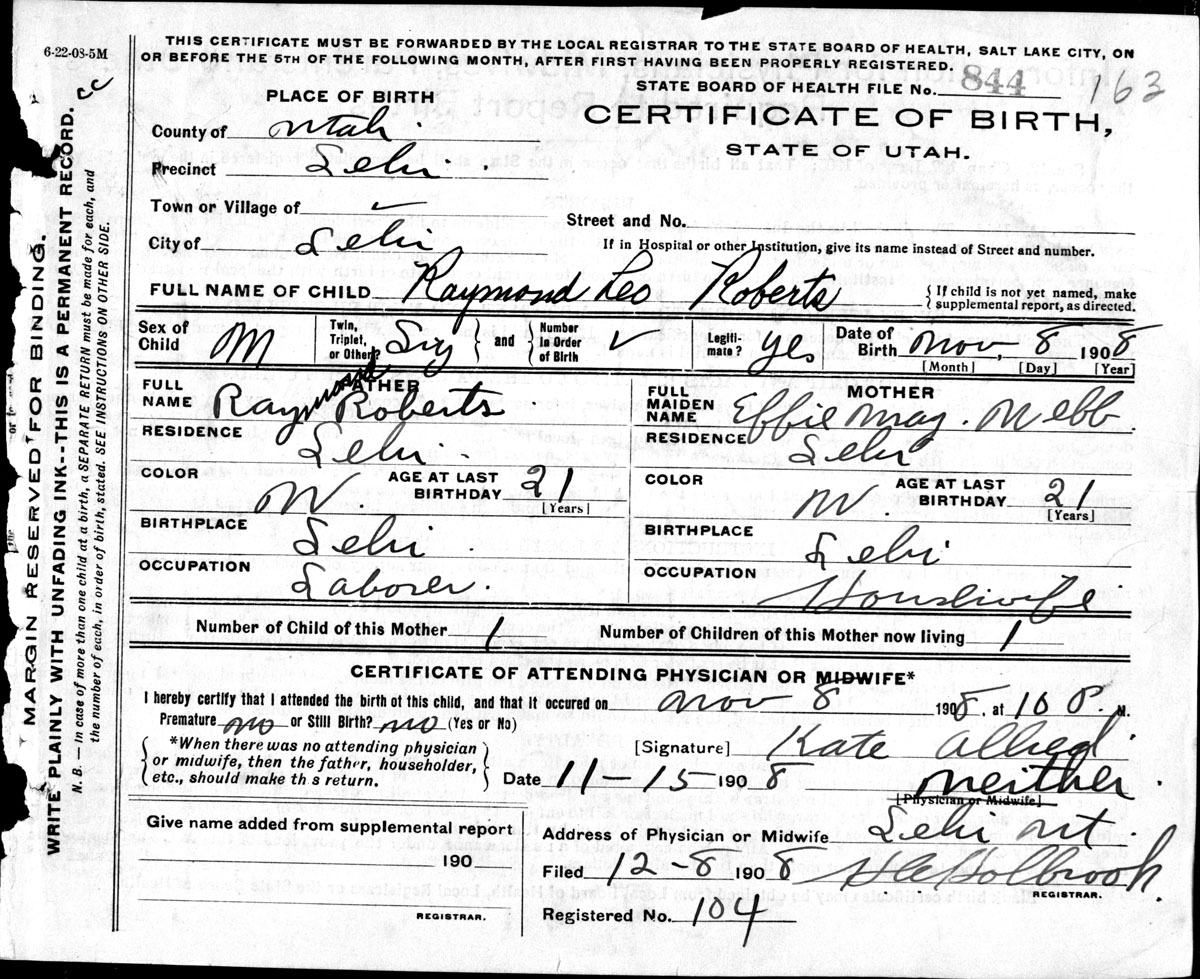 6-22-08-5M
THIS CERTIFICATE MUST BE FORWARDED BY THE LOCAL REGISTRAR TO THE STATE BOARD OF HEALTH, SALT LAKE CITY, ON
OR BEFORE THE 5TH OF THE FOLLOWING MONTH, AFTER FIRST HAVING BEEN PROPERLY REGISTERED.
STATE BOARD OF HEALTH FILE No. 844 163
PLACE OF BIRTH
CERTIFICATE OF BIRTH,
STATE OF UTAH.
County of Utah
Precinct Lehi
Town or Village of ✓
Street and No.
City of Lehi
If in Hospital or other Institution, give its name instead of Street and number.
FULL NAME OF CHILD Raymond Leo Roberts { If child is not yet named, make
supplemental report, as directed.
Sex of Child M
Twin, Triplet, or Other? } and { Number in Order of Birth ✓
Legiti-mate? Yes
Date of Birth Nov. 8 1908
[Month] [Day] [Year]
FATHER
FULL NAME Raymond Roberts
MOTHER
FULL MAIDEN NAME Effie May Webb
RESIDENCE Lehi
RESIDENCE Lehi
COLOR W. AGE AT LAST BIRTHDAY 21 [Years]
COLOR W. AGE AT LAST BIRTHDAY 21 [Years]
BIRTHPLACE Lehi
BIRTHPLACE Lehi
OCCUPATION Laborer.
OCCUPATION Housewife
Number of Child of this Mother 1 Number of Children of this Mother now living 1
CERTIFICATE OF ATTENDING PHYSICIAN OR MIDWIFE*
I hereby certify that I attended the birth of this child, and that it occured on Nov 8 1908, at 10 P. M.
Premature no or Still Birth? no (Yes or No)
*When there was no attending physician
or midwife, then the father, householder,
etc., should make th s return.
[Signature] Kate Allred
Date 11-15 1908 neither.
[Physician or Midwife]
Give name added from supplemental report
190
REGISTRAR.
Address of Physician or Midwife Lehi Ut.
Filed 12-8 1908 Holbrook
REGISTRAR.
Registered No. 104
MARGIN RESERVED FOR BINDING.
WRITE PLAINLY WITH UNFADING INK--THIS IS A PERMANENT RECORD. cc
N. B. — In case of more than one child at a birth, a SEPARATE RETURN must be made for each, and
the number of each, in order of birth, stated. SEE INSTRUCTIONS ON OTHER SIDE.